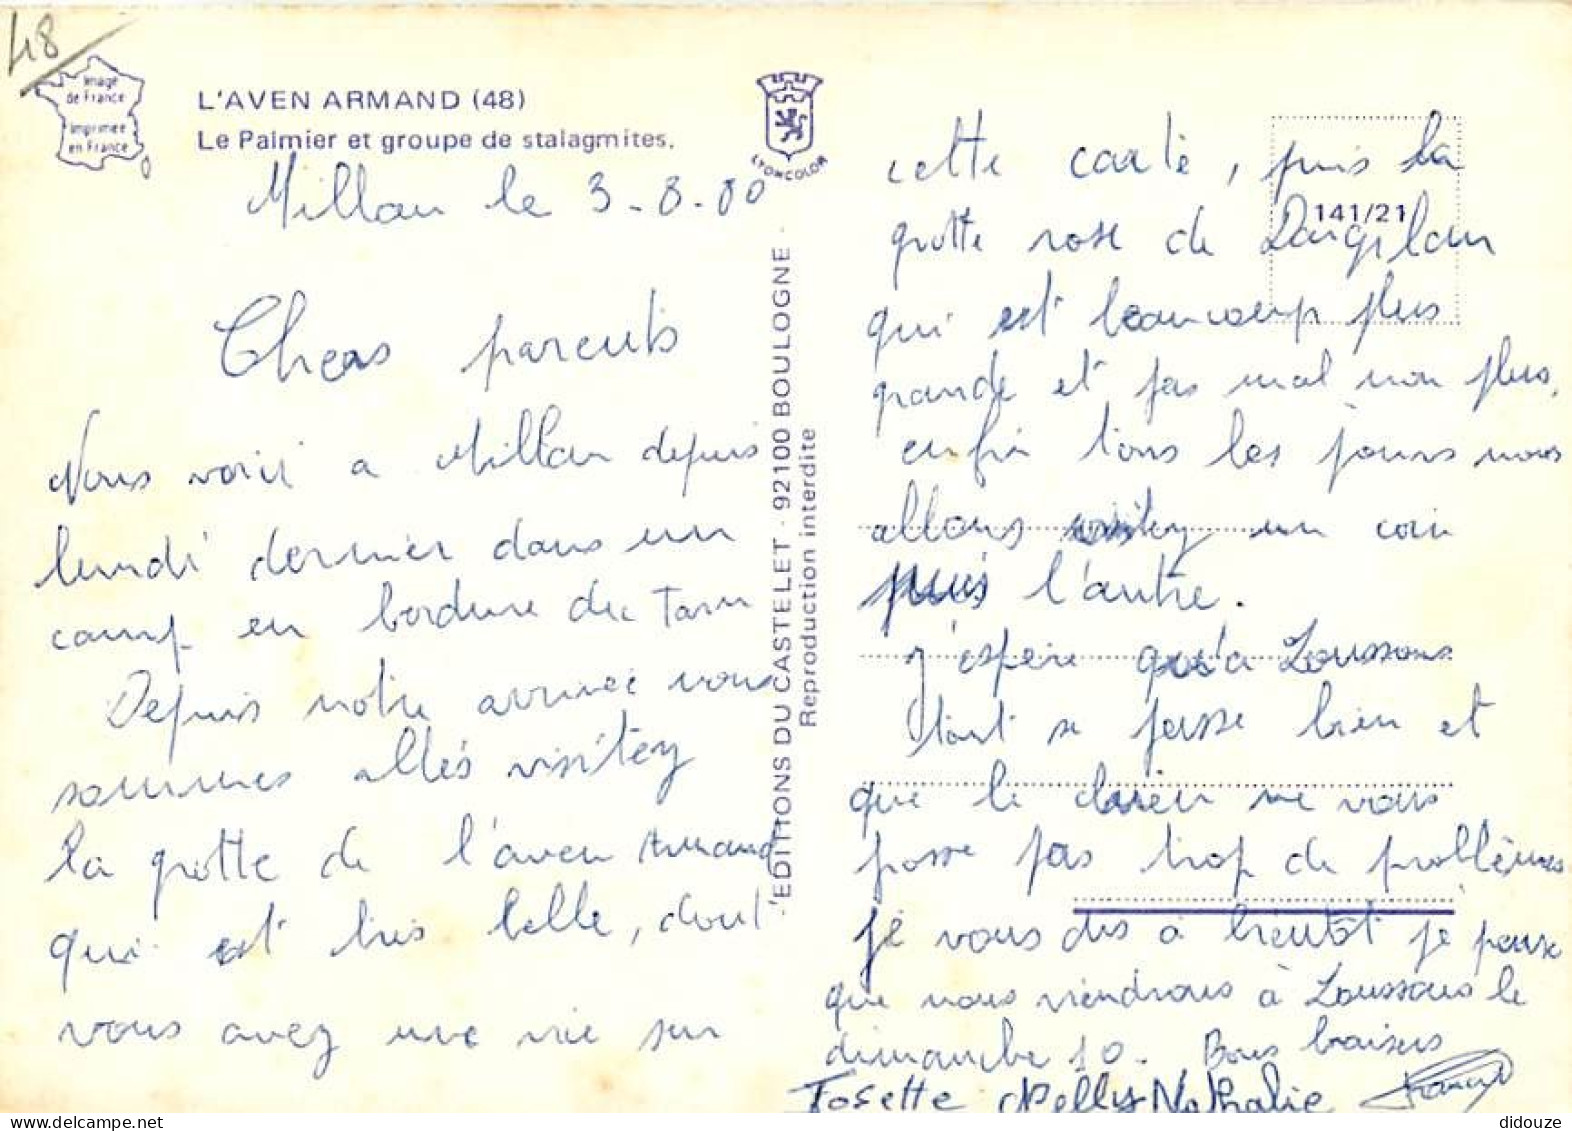 48
Image
de France
Imprimée
en France
L'AVEN ARMAND (48)
Le Palmier et groupe de stalagmites.
LYONCOLOR
141/21
EDITIONS DU CASTELET - 92100 BOULOGNE -
Reproduction interdite
Millau le 3-8-80
Chers parents
Nous voici a Millau depuis
lundi dernier dans un
camp en bordure du Tarn
Depuis notre arrivée nous
sommes allés visitez
la grotte de l'aven Armand
qui est très belle, dont
vous avez une vie sur
cette carte, puis la
grotte rose de Dargilan
qui est beaucoup plus
grande et pas mal non plus,
enfin tous les jours nous
allons visitez un coin
puis l'autre.
J'espère qu'a Loussous
tout se passe bien et
que le chien ne vous
posse pas trop de problèmes
je vous dis à bientôt je pense
que nous viendrons à Loussous le
dimanche 10. Bons baisers
Josette Nelly Nathalie
didouze